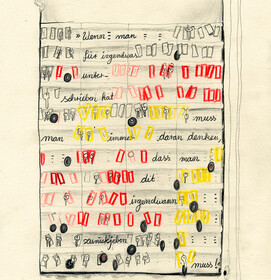 » Wenn man
für irgendwas
unter-
schrieben hat
muss
man immer daran denken,
dass man
dit
irgendwann
zurückjeben
muss!